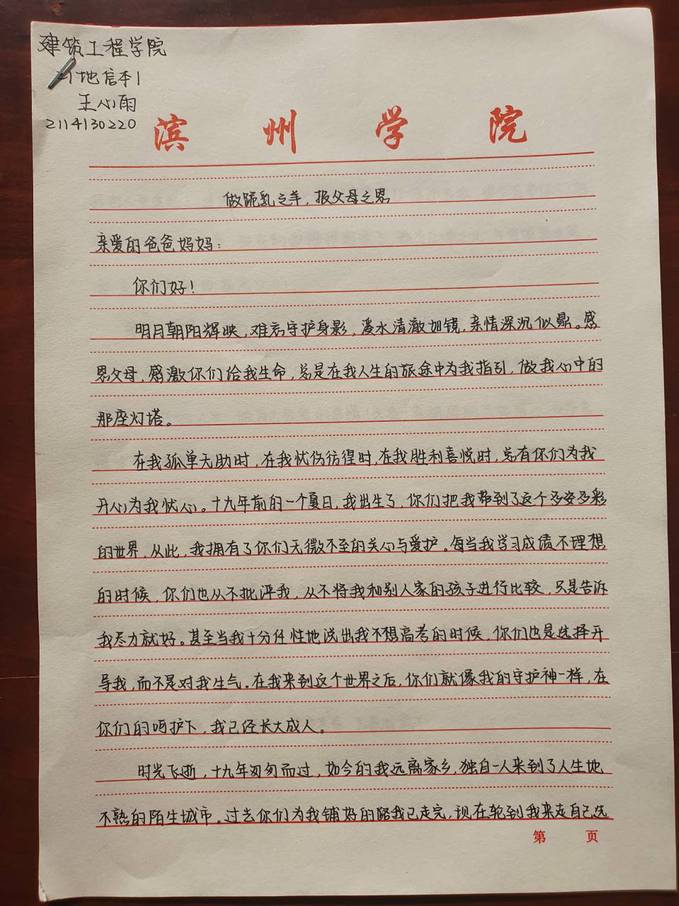 建筑工程学院
地信本1
王心雨
2114130220
滨州学院
做跪乳之羊，报父母之恩
亲爱的爸爸妈妈：
你们好！
明月朝阳辉映，难忘守护身影，爱水清澈如镜，亲情深沉似鼎。感
恩父母，感激你们给我生命，总是在我人生的旅途中为我指引，做我心中的
那座灯塔。
在我孤单无助时，在我忧伤彷徨时，在我胜利喜悦时，总有你们为我
开心为我忧心。十九年前的一个夏日，我出生了，你们把我带到了这个多姿多彩
的世界，从此，我拥有了你们无微不至的关心与爱护。每当我学习成绩不理想
的时候，你们也从不批评我，从不将我和别人家的孩子进行比较，只是告诉
我尽力就好。甚至当我十分任性地说出我不想高考的时候，你们也是选择开
导我，而不是对我生气。在我来到这个世界之后，你们就像我的守护神一样，在
你们的呵护下，我已经长大成人。
时光飞逝，十九年匆匆而过，如今的我远离家乡，独自一人来到了人生地
不熟的陌生城市。过去你们为我铺好的路我已走完，现在轮到我来走自己选
第 页